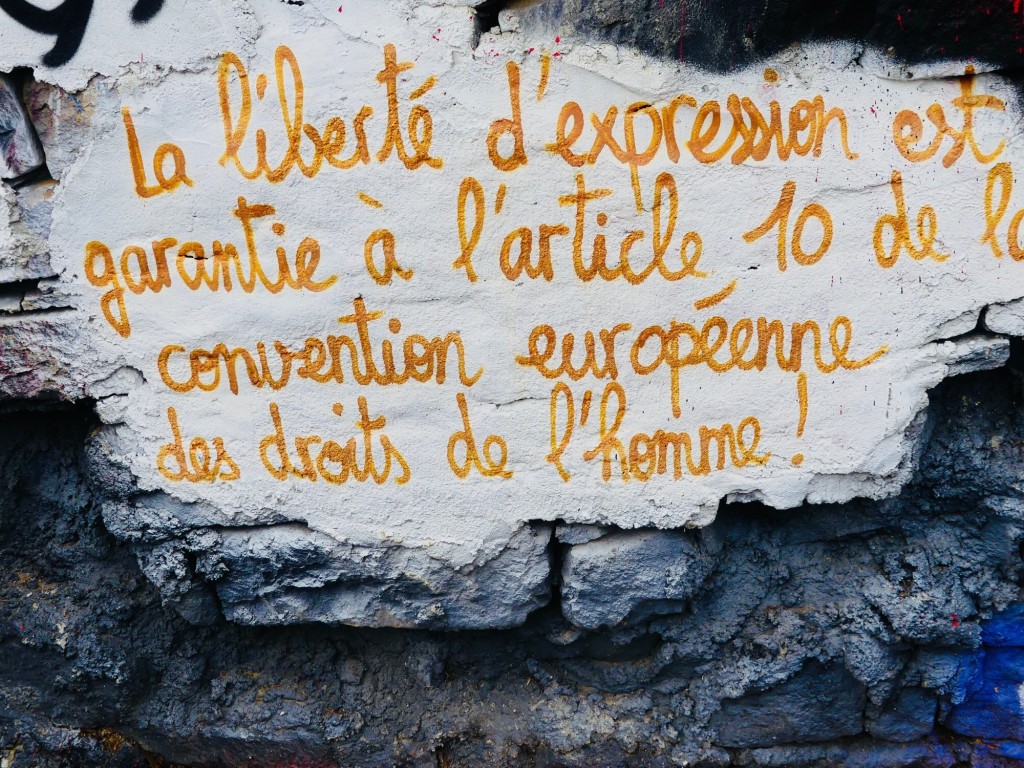 La liberté d'expression est
garantie à l'article 10 de la
convention européenne
des droits de l'homme !